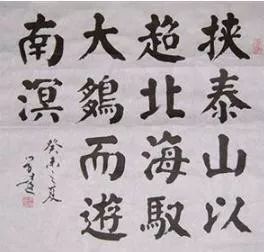 挾泰山以
超北海馭
大而遊
南溟
癸未之夏